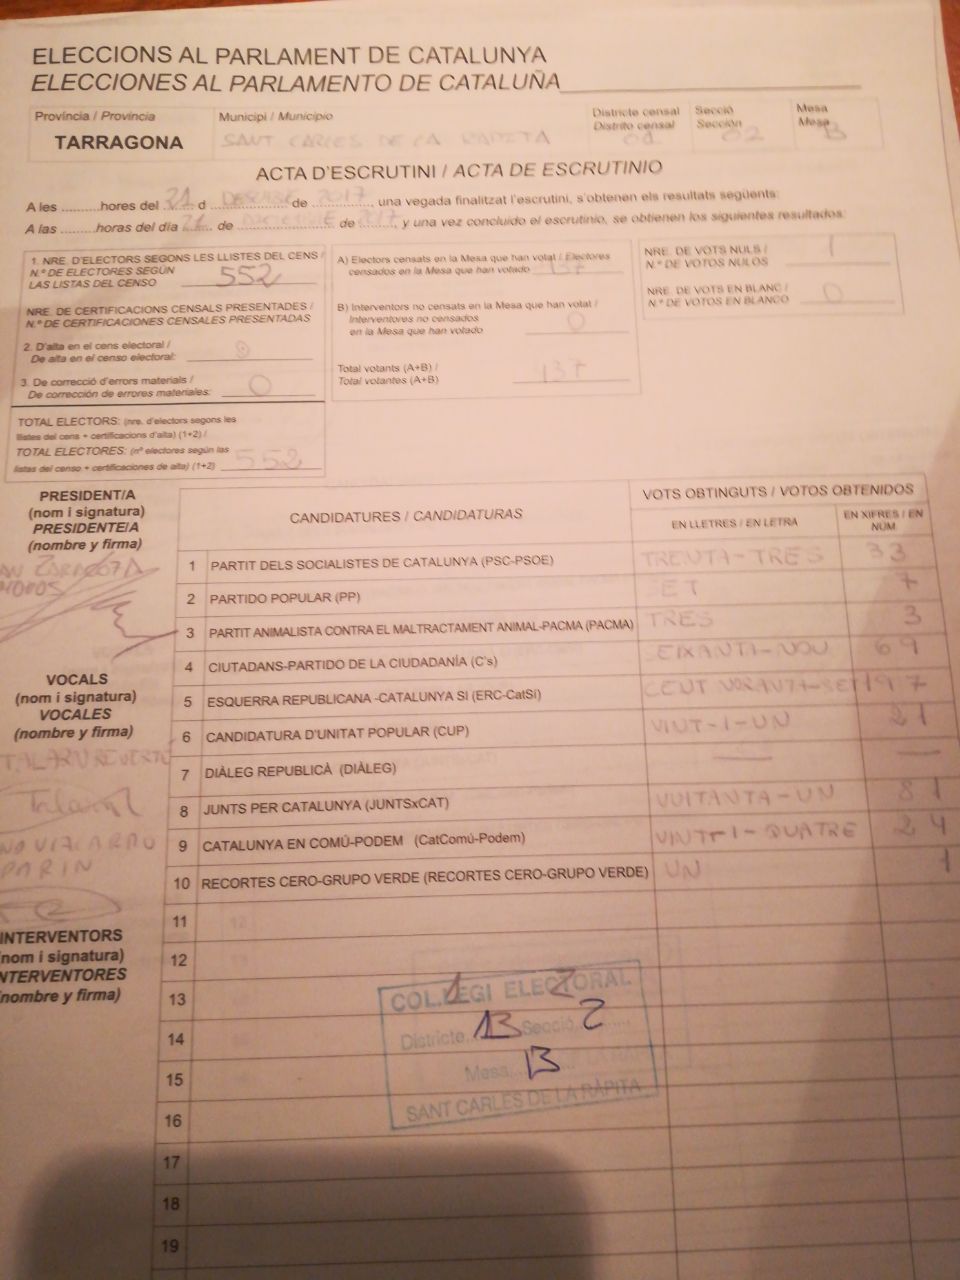 ELECCIONS AL PARLAMENT DE CATALUNYA
ELECCIONES AL PARLAMENTO DE CATALUÑA
Província / Provincia
TARRAGONA
Municipi / Municipio
SANT CARLES DE LA RAPITA
Districte censal
Distrito censal
01
Secció
Sección
02
Mesa
Mesa
B
ACTA D'ESCRUTINI / ACTA DE ESCRUTINIO
A les ..........hores del 21 d DESEMBRE de 2017, una vegada finalitzat l'escrutini, s'obtenen els resultats següents:
A las .........horas del día 21 de DICIEMBRE de 2017, y una vez concluido el escrutinio, se obtienen los siguientes resultados:
1. NRE. D'ELECTORS SEGONS LES LLISTES DEL CENS /
N.º DE ELECTORES SEGÚN
LAS LISTAS DEL CENSO 552
NRE. DE CERTIFICACIONS CENSALS PRESENTADES /
N.º DE CERTIFICACIONES CENSALES PRESENTADAS
2. D'alta en el cens electoral /
De alta en el censo electoral: 0
3. De correcció d'errors materials /
De corrección de errores materiales: 0
TOTAL ELECTORS: (nre. d'electors segons les
llistes del cens + certificacions d'alta) (1+2) /
TOTAL ELECTORES: (nº electores según las
listas del censo + certificaciones de alta) (1+2) 552
A) Electors censats en la Mesa que han votat / Electores
censados en la Mesa que han votado 437
B) Interventors no censats en la Mesa que han votat /
Interventores no censados
en la Mesa que han votado 0
Total votants (A+B) /
Total votantes (A+B) 437
NRE. DE VOTS NULS /
N.º DE VOTOS NULOS 1
NRE. DE VOTS EN BLANC /
N.º DE VOTOS EN BLANCO 0
PRESIDENT/A
(nom i signatura)
PRESIDENTE/A
(nombre y firma)
ZARAGOZA
VOCALS
(nom i signatura)
VOCALES
(nombre y firma)
TALARN REVERTE
Talarn
INTERVENTORS
(nom i signatura)
INTERVENTORES
(nombre y firma)
CANDIDATURES / CANDIDATURAS
VOTS OBTINGUTS / VOTOS OBTENIDOS
EN LLETRES / EN LETRA
EN XIFRES / EN NÚM
1 PARTIT DELS SOCIALISTES DE CATALUNYA (PSC-PSOE) TRENTA-TRES 33
2 PARTIDO POPULAR (PP) SET 7
3 PARTIT ANIMALISTA CONTRA EL MALTRACTAMENT ANIMAL-PACMA (PACMA) TRES 3
4 CIUTADANS-PARTIDO DE LA CIUDADANÍA (C's) SEIXANTA-NOU 69
5 ESQUERRA REPUBLICANA -CATALUNYA SI (ERC-CatSí) CENT NORANTA-SET 197
6 CANDIDATURA D'UNITAT POPULAR (CUP) VINT-I-UN 21
7 DIÀLEG REPUBLICÀ (DIÀLEG) — —
8 JUNTS PER CATALUNYA (JUNTSxCAT) VUITANTA-UN 81
9 CATALUNYA EN COMÚ-PODEM (CatComú-Podem) VINT-I-QUATRE 24
10 RECORTES CERO-GRUPO VERDE (RECORTES CERO-GRUPO VERDE) UN 1
11
12
13
14
15
16
17
18
19
COL.LEGI ELECTORAL
Districte Secció 2
Mesa B
SANT CARLES DE LA RÀPITA